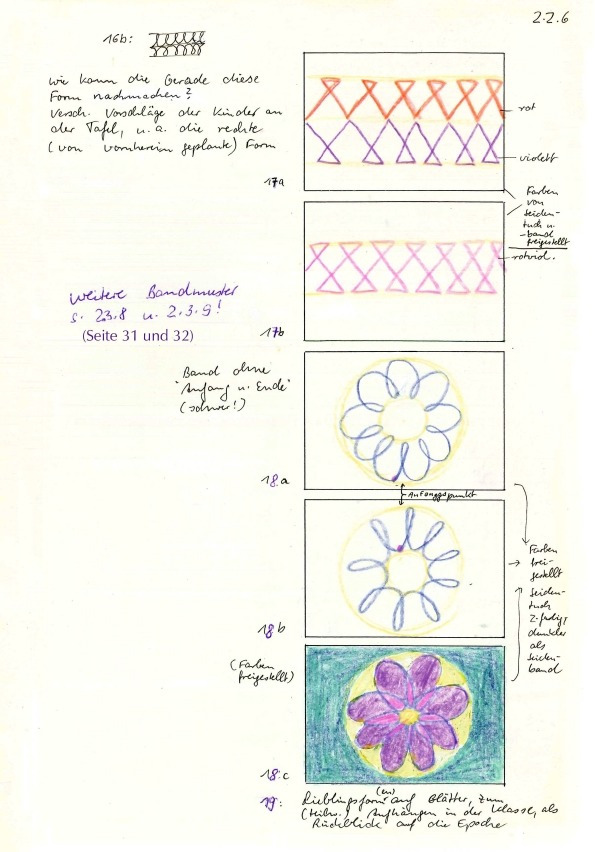 2.2.6
16b:
Wie kann die Gerade diese
Form nachmachen?
Versch. Vorschläge der Kinder an
der Tafel, u. a. die rechte
(von vornherein geplante) Form
rot
violett
17a
Farben
von
Seiden-
tuch u.
-band
freigestellt
rotviol.
weitere Bandmuster
s. 2.3.8 u. 2.3.9!
(Seite 31 und 32)
17b
Band ohne
"Anfang u. Ende"
(schwer!)
18.a
Anfangspunkt
Farben
frei-
gestellt
Seiden-
tuch
2-farbig,
dunkler
als
Seiden-
band
18b
(Farben
freigestellt)
18.c
19:
Lieblingsform(en) auf Blätter, zum
(teilw.) Aufhängen in der Klasse, als
Rückblick auf die Epoche